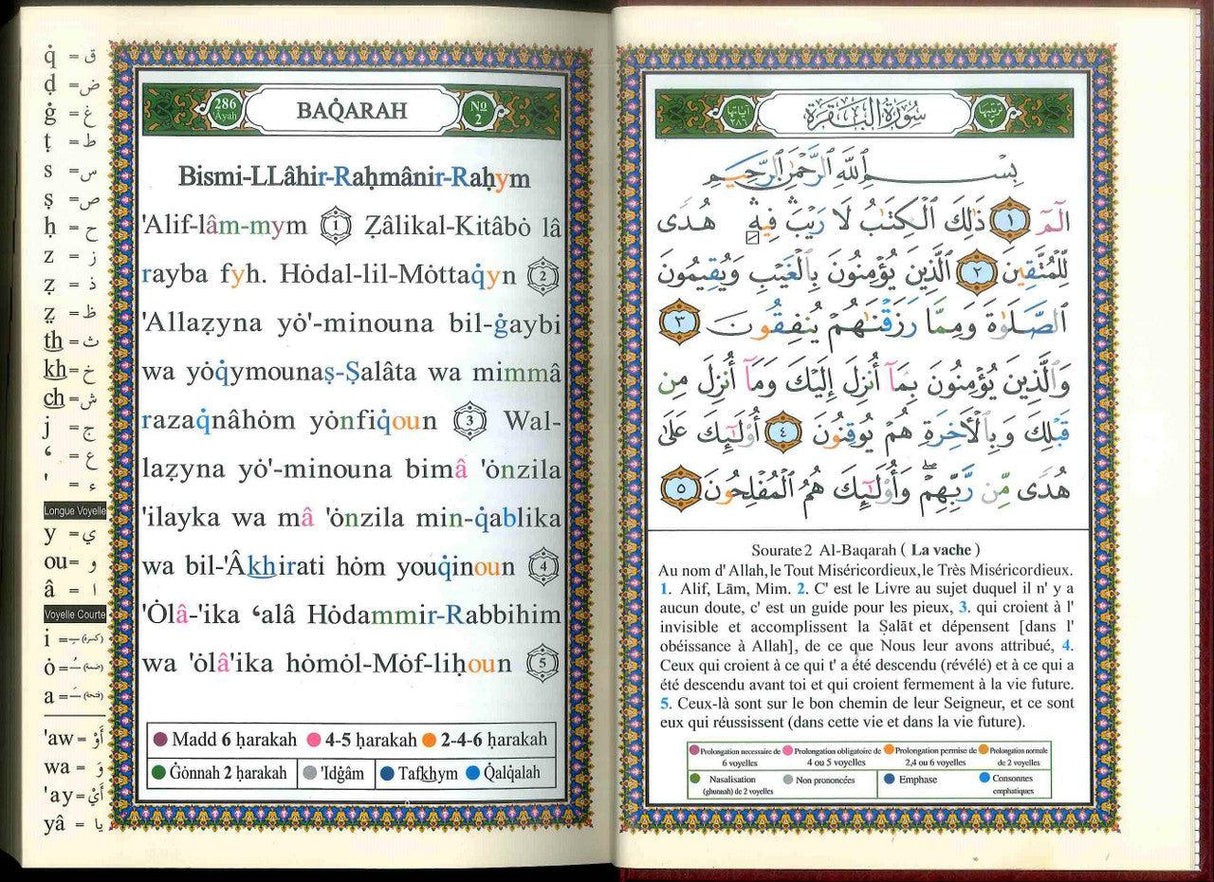 q̇ = ق
ḍ = ض
ġ = غ
ṭ = ط
s = س
ṣ = ص
ḥ = ح
z = ز
ẓ = ذ
ẓ = ظ
th = ث
kh = خ
ch = ش
j = ج
‘ = ع
' = ء
Longue Voyelle
y = ي
ou = و
â = ا
Voyelle Courte
i = (كسرة)
ȯ = (ضمة)
a = (فتحة)
'aw = أَوْ
wa = وَ
'ay = أَيْ
yâ = يا
286 'Ayah
BAQ̇ARAH
No 2
Bismi-LLâhir-Raḥmânir-Raḥym
'Alif-lâm-mym 1 Ẓâlikal-Kitâbȯ lâ
rayba fyh. Hȯdal-lil-Mȯttaq̇yn 2
'Allaẓyna yȯ'-minouna bil-ġaybi
wa yȯq̇ymounaṣ-Ṣalâta wa mimmâ
razaq̇nâhȯm yȯnfiq̇oun 3 Wal-
laẓyna yȯ'-minouna bimâ 'ȯnzila
'ilayka wa mâ 'ȯnzila min-q̇ablika
wa bil-'Âkhirati hȯm youq̇inoun 4
'Ȯlâ-'ika ‘alâ Hȯdammir-Rabbihim
wa 'ȯlâ'ika hȯmȯl-Mȯf-liḥoun 5
Madd 6 ḥarakah 4-5 ḥarakah 2-4-6 ḥarakah
Ġȯnnah 2 ḥarakah 'Idġâm Tafkhym Q̇alq̇alah
آياتها ٢٨٦
سُورَةُ البَقَرَةِ
ترتيبها ٢
بِسْمِ ٱللَّهِ ٱلرَّحْمَٰنِ ٱلرَّحِيمِ
الٓمٓ ١ ذَٰلِكَ ٱلْكِتَٰبُ لَا رَيْبَ ۛ فِيهِ ۛ هُدًى
لِّلْمُتَّقِينَ ٢ ٱلَّذِينَ يُؤْمِنُونَ بِٱلْغَيْبِ وَيُقِيمُونَ
ٱلصَّلَوٰةَ وَمِمَّا رَزَقْنَٰهُمْ يُنفِقُونَ ٣
وَٱلَّذِينَ يُؤْمِنُونَ بِمَآ أُنزِلَ إِلَيْكَ وَمَآ أُنزِلَ مِن
قَبْلِكَ وَبِٱلْءَاخِرَةِ هُمْ يُوقِنُونَ ٤ أُوْلَٰٓئِكَ عَلَىٰ
هُدًى مِّن رَّبِّهِمْ ۖ وَأُوْلَٰٓئِكَ هُمُ ٱلْمُفْلِحُونَ ٥
Sourate 2 Al-Baqarah ( La vache )
Au nom d' Allah, le Tout Miséricordieux, le Très Miséricordieux.
1. Alif, Lām, Mim. 2. C' est le Livre au sujet duquel il n' y a
aucun doute, c' est un guide pour les pieux, 3. qui croient à l'
invisible et accomplissent la Ṣalāt et dépensent [dans l'
obéissance à Allah], de ce que Nous leur avons attribué, 4.
Ceux qui croient à ce qui t' a été descendu (révélé) et à ce qui a
été descendu avant toi et qui croient fermement à la vie future.
5. Ceux-là sont sur le bon chemin de leur Seigneur, et ce sont
eux qui réussissent (dans cette vie et dans la vie future).
Prolongation necessaire de 6 voyelles
Prolongation obligatoire de 4 ou 5 voyelles
Prolongation permise de 2,4 ou 6 voyelles
Prolongation normale de 2 voyelles
Nasalisation (ghunnah) de 2 voyelles
Non prononcées
Emphase
Consonnes emphatiques